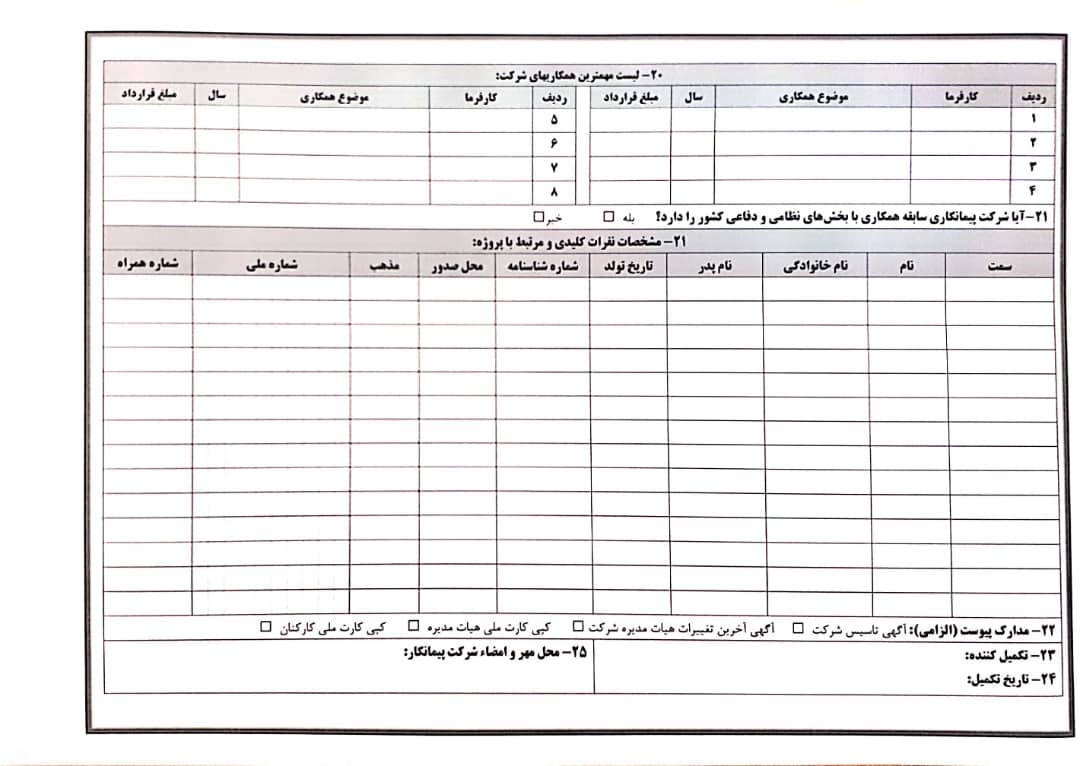 ۲۰- لیست مهمترین همکاریهای شرکت:
ردیف کارفرما موضوع همکاری سال مبلغ قرارداد ردیف کارفرما موضوع همکاری سال مبلغ قرارداد
۱ ۵
۲ ۶
۳ ۷
۴ ۸
۲۱-آیا شرکت پیمانکاری سابقه همکاری با بخش‌های نظامی و دفاعی کشور را دارد؟ بله ☐ خیر ☐
۲۱- مشخصات نفرات کلیدی و مرتبط با پروژه:
سمت نام نام خانوادگی نام پدر تاریخ تولد شماره شناسنامه محل صدور مذهب شماره ملی شماره همراه
۲۲- مدارک پیوست (الزامی): آگهی تاسیس شرکت ☐ آگهی آخرین تغییرات هیات مدیره شرکت ☐ کپی کارت ملی هیات مدیره ☐ کپی کارت ملی کارکنان ☐
۲۳- تکمیل کننده:
۲۴- تاریخ تکمیل:
۲۵- محل مهر و امضاء شرکت پیمانکار: